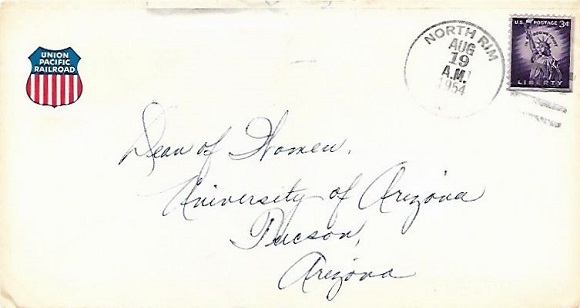 UNION
PACIFIC
RAILROAD
NORTH RIM
AUG
19
A.M.
1954
U.S. POSTAGE 3¢
LIBERTY
Dean of Women,
University of Arizona
Tucson,
Arizona